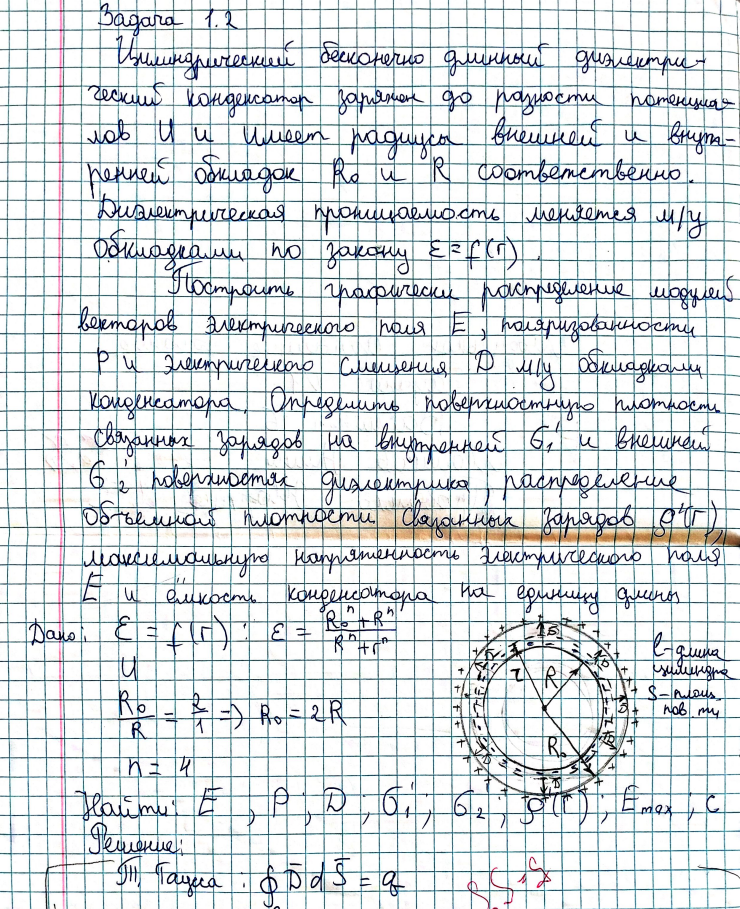 Задача 1.2
Цилиндрический бесконечно длинный диэлектри-
ческий конденсатор заряжен до разности потенциа-
лов U и имеет радиусы внешней и внут-
ренней обкладок R₀ и R соответственно.
Диэлектрическая проницаемость меняется м/у
обкладками по закону ε = f(r).
Построить графически распределение модулей
векторов электрического поля E, поляризованности
P и электрического смещения D м/у обкладками
конденсатора. Определить поверхностную плотность
связанных зарядов на внутренней σ₁' и внешней
σ₂' поверхностях диэлектрика, распределение
объёмной плотности связанных зарядов ρ'(r),
максимальную напряженность электрического поля
E и ёмкость конденсатора на единицу длины
Дано: ε = f(r) : ε = (R₀ⁿ + Rⁿ)/(Rⁿ + rⁿ)
U
R₀/R = 2/1 => R₀ = 2R
n = 4
r
R
R₀
D
l - длина
цилиндра
S - площ.
пов-ти
Найти: E, P; D; σ₁'; σ₂'; ρ'(r); Emax; c
Решение:
Т. Гаусса: ∮ D̄ dS̄ = q